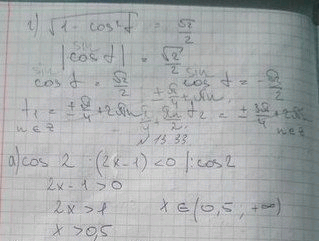 г) √(1 - cos²t) = √2/2
|cos t| = √2/2
sin
cos t = √2/2 sin cos t = -√2/2
t₁ = ± π/4 + 2πn t₂ = ± 3π/4 + 2πn
n ∈ Z n ∈ Z
№ 13.33
а) cos 2 · (2x-1) < 0 | : cos 2
2x - 1 > 0
2x > 1 x ∈ (0,5; +∞)
x > 0,5